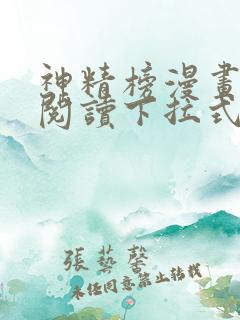 神精榜漫畫
閱讀下拉式
張藝馨
未经同意禁止转载